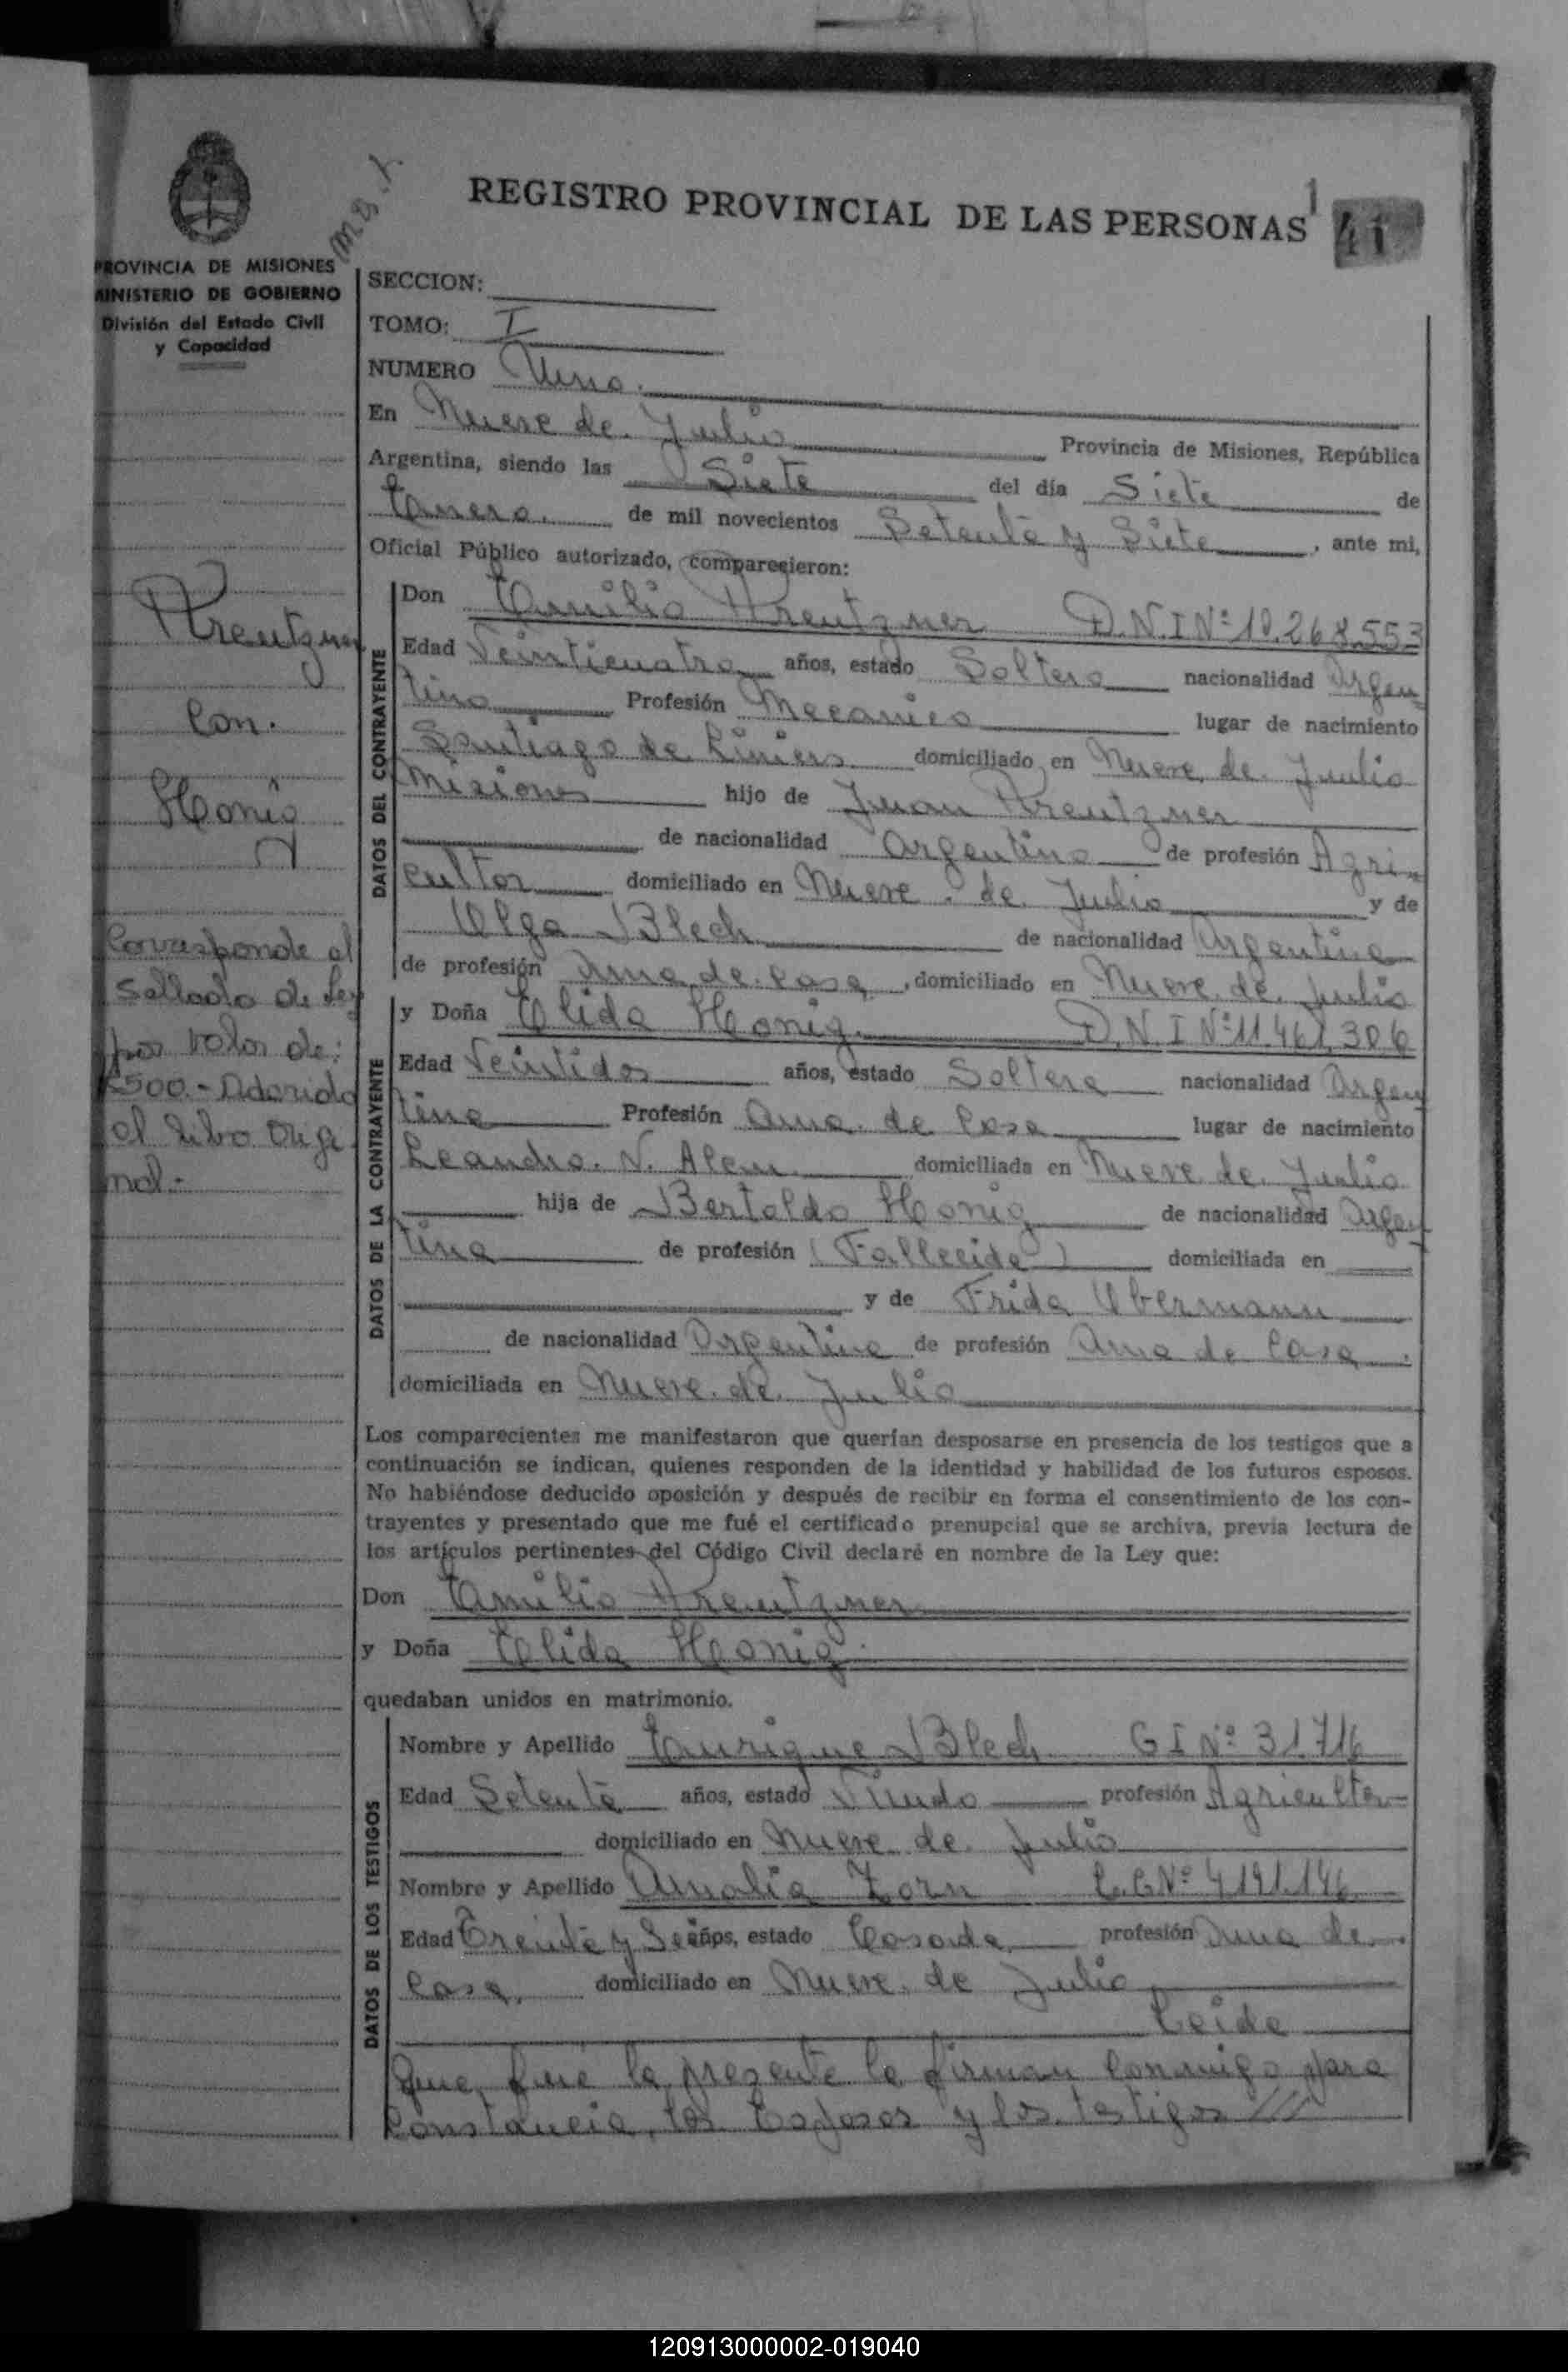 REGISTRO PROVINCIAL DE LAS PERSONAS
1
41
PROVINCIA DE MISIONES
MINISTERIO DE GOBIERNO
División del Estado Civil
y Capacidad
SECCION:
TOMO: I
NUMERO Uno.
En Nueve de Julio Provincia de Misiones, República
Argentina, siendo las Siete del día Siete de
Enero. de mil novecientos Setenta y Siete, ante mi,
Oficial Público autorizado, comparecieron:
Kreutzner
Con.
Honig
Corresponde al
Sellado de Ley
por valor de:
$500.- Aderido
al libro Origi
nal.-
DATOS DEL CONTRAYENTE
Don Emilio Kreutzner D.N.I Nº 10.268.553
Edad Veinticuatro años, estado Soltero nacionalidad Argen
tino Profesión Mecanico lugar de nacimiento
Santiago de Liniers domiciliado en Nueve de Julio
Misiones hijo de Juan Kreutzner
de nacionalidad Argentino de profesión Agri
cultor domiciliado en Nueve de Julio y de
Olga Blech de nacionalidad Argentina
de profesión Ama de Casa, domiciliado en Nueve de Julio
DATOS DE LA CONTRAYENTE
y Doña Elida Honig. D.N.I Nº 11.461.306
Edad Veintidos años, estado Soltera nacionalidad Argen
tina Profesión Ama de Casa lugar de nacimiento
Leandro. N. Alem domiciliada en Nueve de Julio
hija de Bertoldo Honig de nacionalidad Argen
tina de profesión (Fallecido) domiciliada en
y de Frida Obermann
de nacionalidad Argentina de profesión Ama de Casa.
domiciliada en Nueve de Julio
Los comparecientes me manifestaron que querían desposarse en presencia de los testigos que a
continuación se indican, quienes responden de la identidad y habilidad de los futuros esposos.
No habiéndose deducido oposición y después de recibir en forma el consentimiento de los con-
trayentes y presentado que me fué el certificado prenupcial que se archiva, previa lectura de
los artículos pertinentes del Código Civil declaré en nombre de la Ley que:
Don Emilio Kreutzner
y Doña Elida Honig.
quedaban unidos en matrimonio.
DATOS DE LOS TESTIGOS
Nombre y Apellido Enrique Blech C I Nº 31.716
Edad Setenta años, estado Viudo profesión Agricultor
domiciliado en Nueve de Julio
Nombre y Apellido Amalia Zorn L.C Nº 4.191.146
Edad Treinta y Seis años, estado Casada profesión Ama de
Casa. domiciliado en Nueve de Julio
Leida
que fué la prezente la firman Conmigo para
Constancia, los Esposos y los testigos ///
120913000002-019040